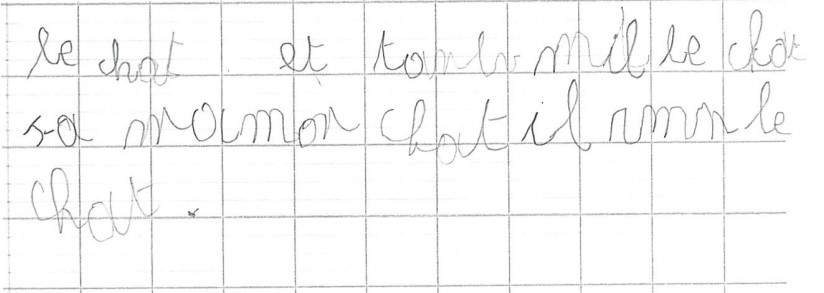 le chat et tombe mil le chat
sa maman chat il rmmn le
chat.